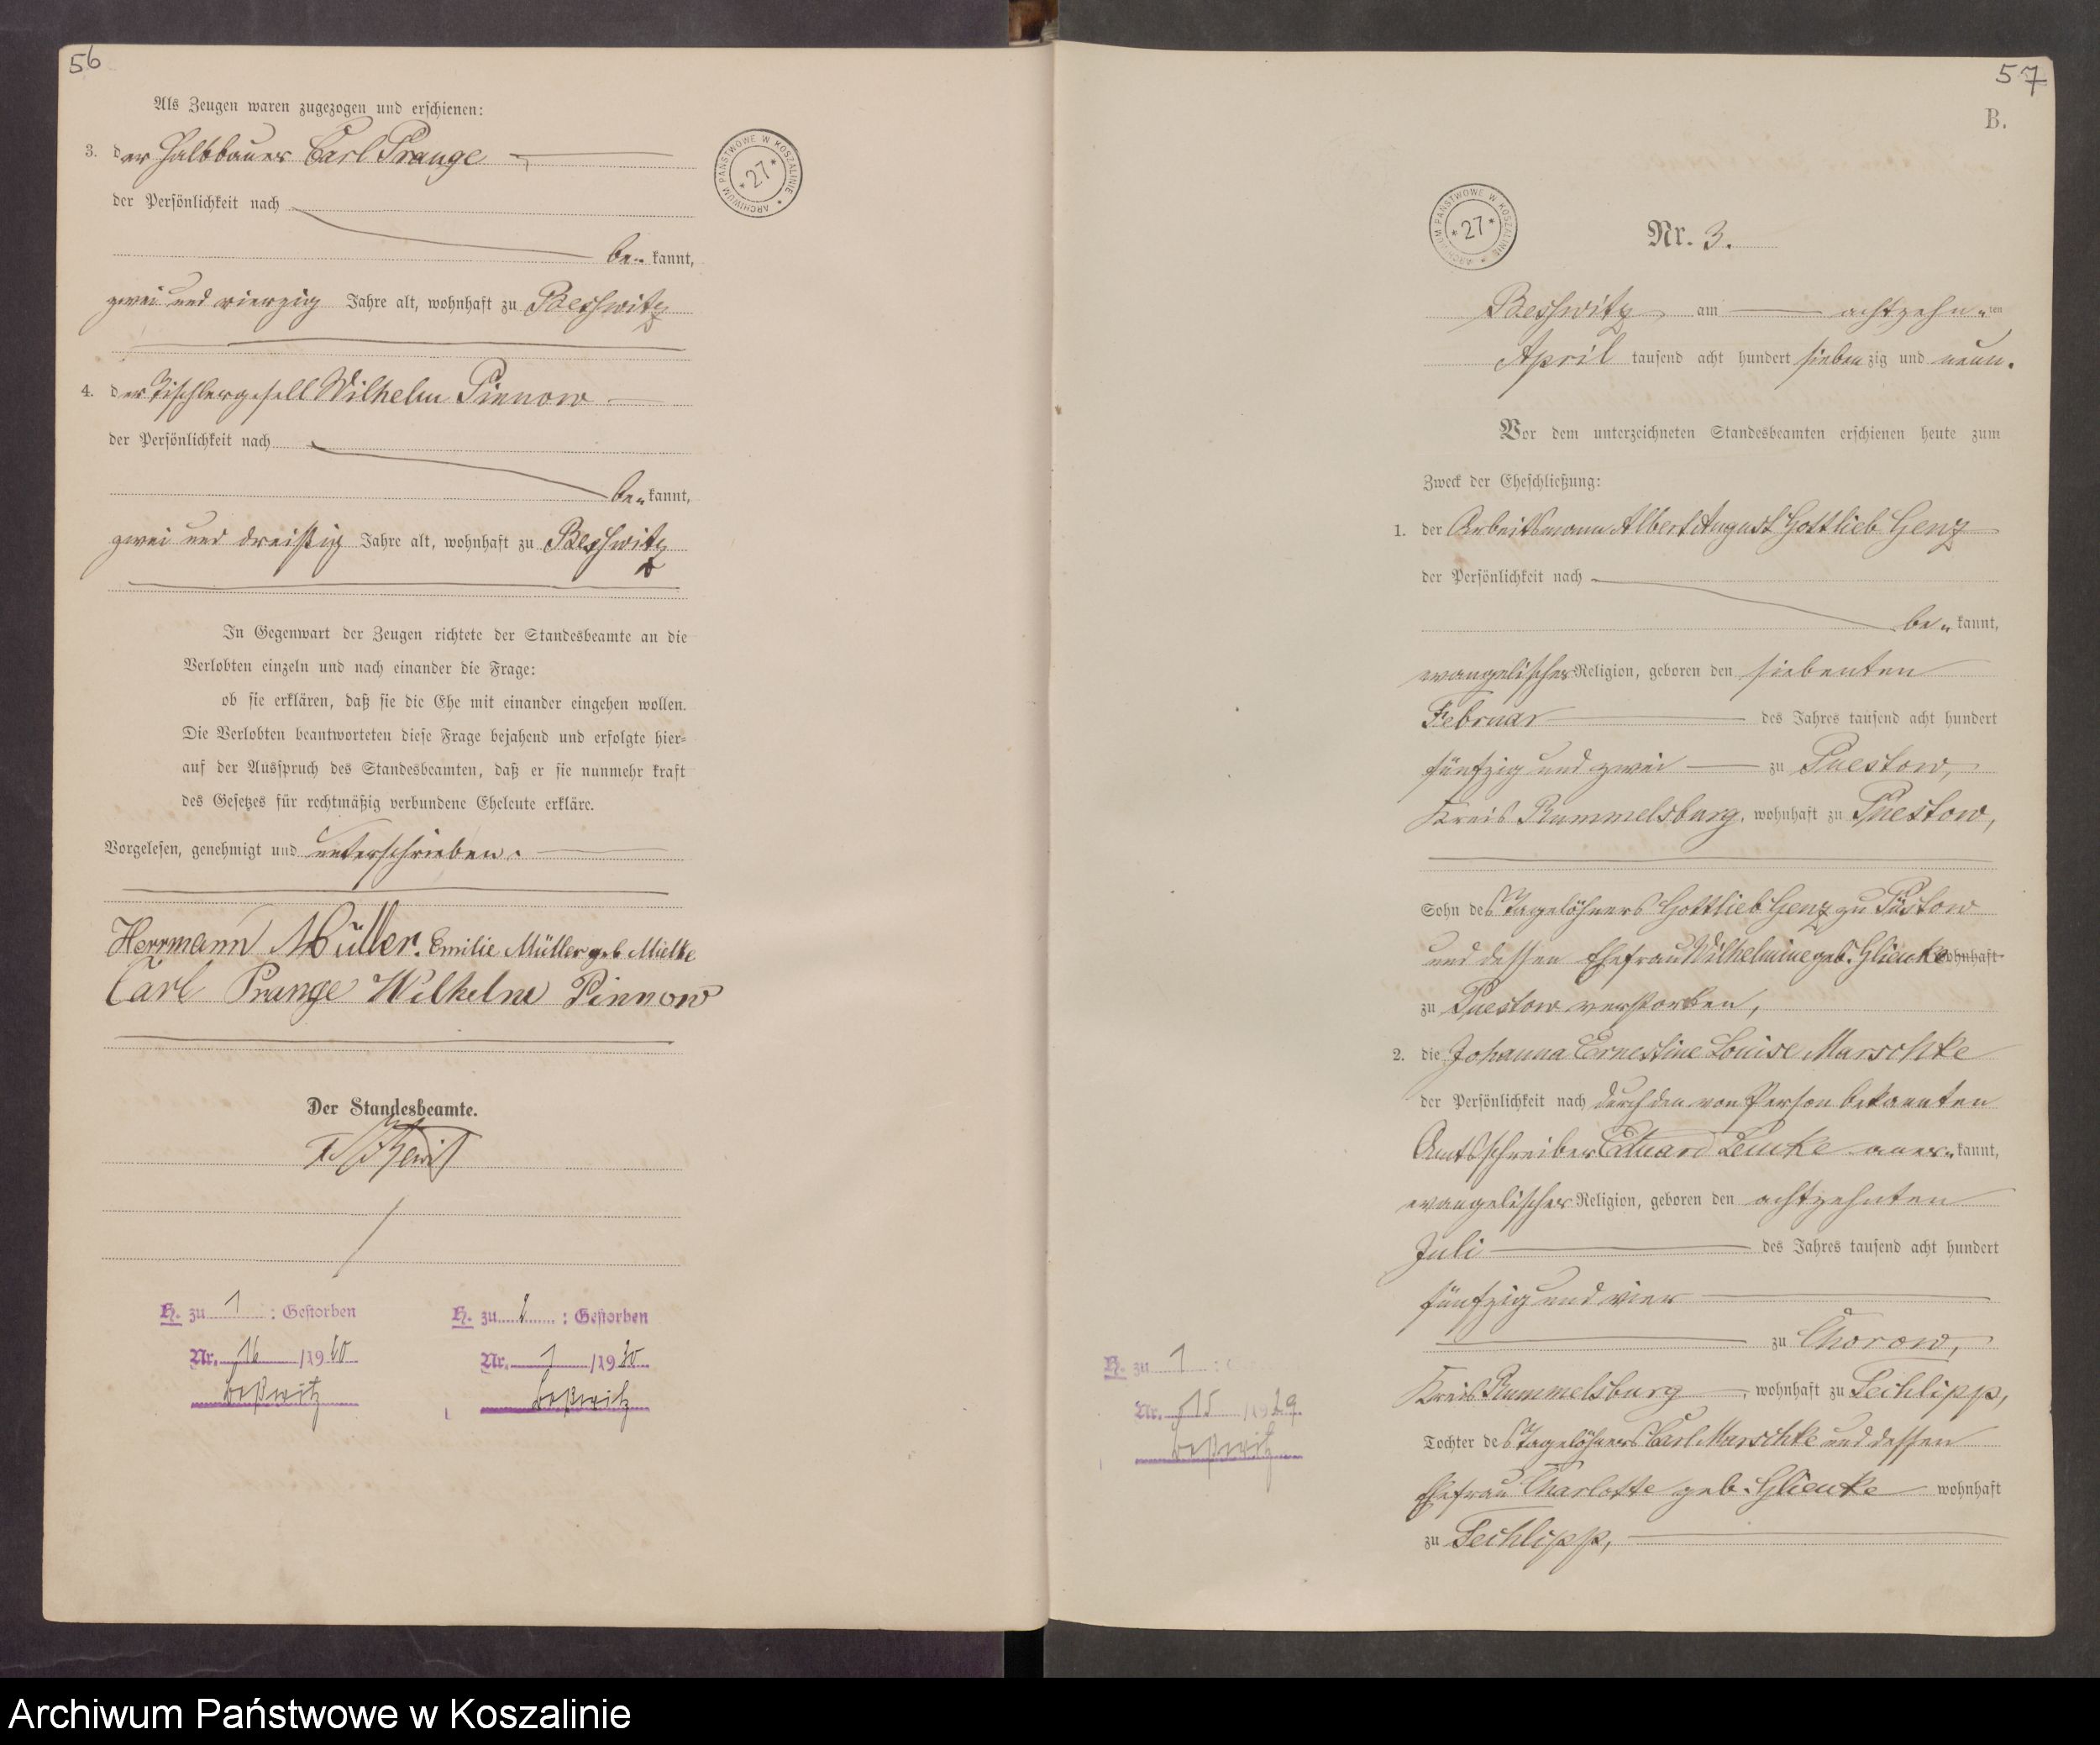 56
Als Zeugen waren zugezogen und erschienen:
3. der Halbbauer Carl Prange
der Persönlichkeit nach
be- kannt,
zwei und vierzig Jahre alt, wohnhaft zu Beßwitz
4. der Tischlergesell Wilhelm Pinnow
der Persönlichkeit nach
be- kannt,
zwei und dreißig Jahre alt, wohnhaft zu Beßwitz
In Gegenwart der Zeugen richtete der Standesbeamte an die
Verlobten einzeln und nach einander die Frage:
ob sie erklären, daß sie die Ehe mit einander eingehen wollen.
Die Verlobten beantworteten diese Frage bejahend und erfolgte hier-
auf der Ausspruch des Standesbeamten, daß er sie nunmehr kraft
des Gesetzes für rechtmäßig verbundene Eheleute erkläre.
Vorgelesen, genehmigt und unterschrieben.
Herrmann Müller. Emilie Müller geb Mielke
Carl Prange Wilhelm Pinnow
Der Standesbeamte.
H. zu 1 : Gestorben
Nr. 16 /19
Beßwitz
H. zu 2 : Gestorben
Nr. 1 /19
Beßwitz
ARCHIWUM PAŃSTWOWE W KOSZALINIE
* 27 *
57
B.
ARCHIWUM PAŃSTWOWE W KOSZALINIE
* 27 *
Nr. 3.
Beßwitz am achtzehn-ten
April tausend acht hundert siebenzig und neun.
Vor dem unterzeichneten Standesbeamten erschienen heute zum
Zweck der Eheschließung:
1. der Arbeitsmann Albert August Gottlieb Henz
der Persönlichkeit nach
be- kannt,
evangelischer Religion, geboren den siebenten
Februar des Jahres tausend acht hundert
fünfzig und zwei zu Puestow,
Kreis Rummelsburg, wohnhaft zu Puestow,
Sohn des Tagelöhners Gottlieb Henz zu Püstow
und dessen Ehefrau Wilhelmine geb. Glienke wohnhaft
zu Puestow verstorben,
2. die Johanna Ernestine Louise Marschke
der Persönlichkeit nach durch den von Person bekannten
Amtsschreiber Eduard Lemke aner- kannt,
evangelischer Religion, geboren den achtzehnten
Juli des Jahres tausend acht hundert
fünfzig und vier
zu Chorow,
Kreis Rummelsburg, wohnhaft zu Techlipp,
Tochter des Tagelöhners Carl Marschke und dessen
Ehefrau Charlotte geb. Glienke wohnhaft
zu Techlipp,
H. zu 1 :
Nr. 15 /19
Beßwitz
Archiwum Państwowe w Koszalinie